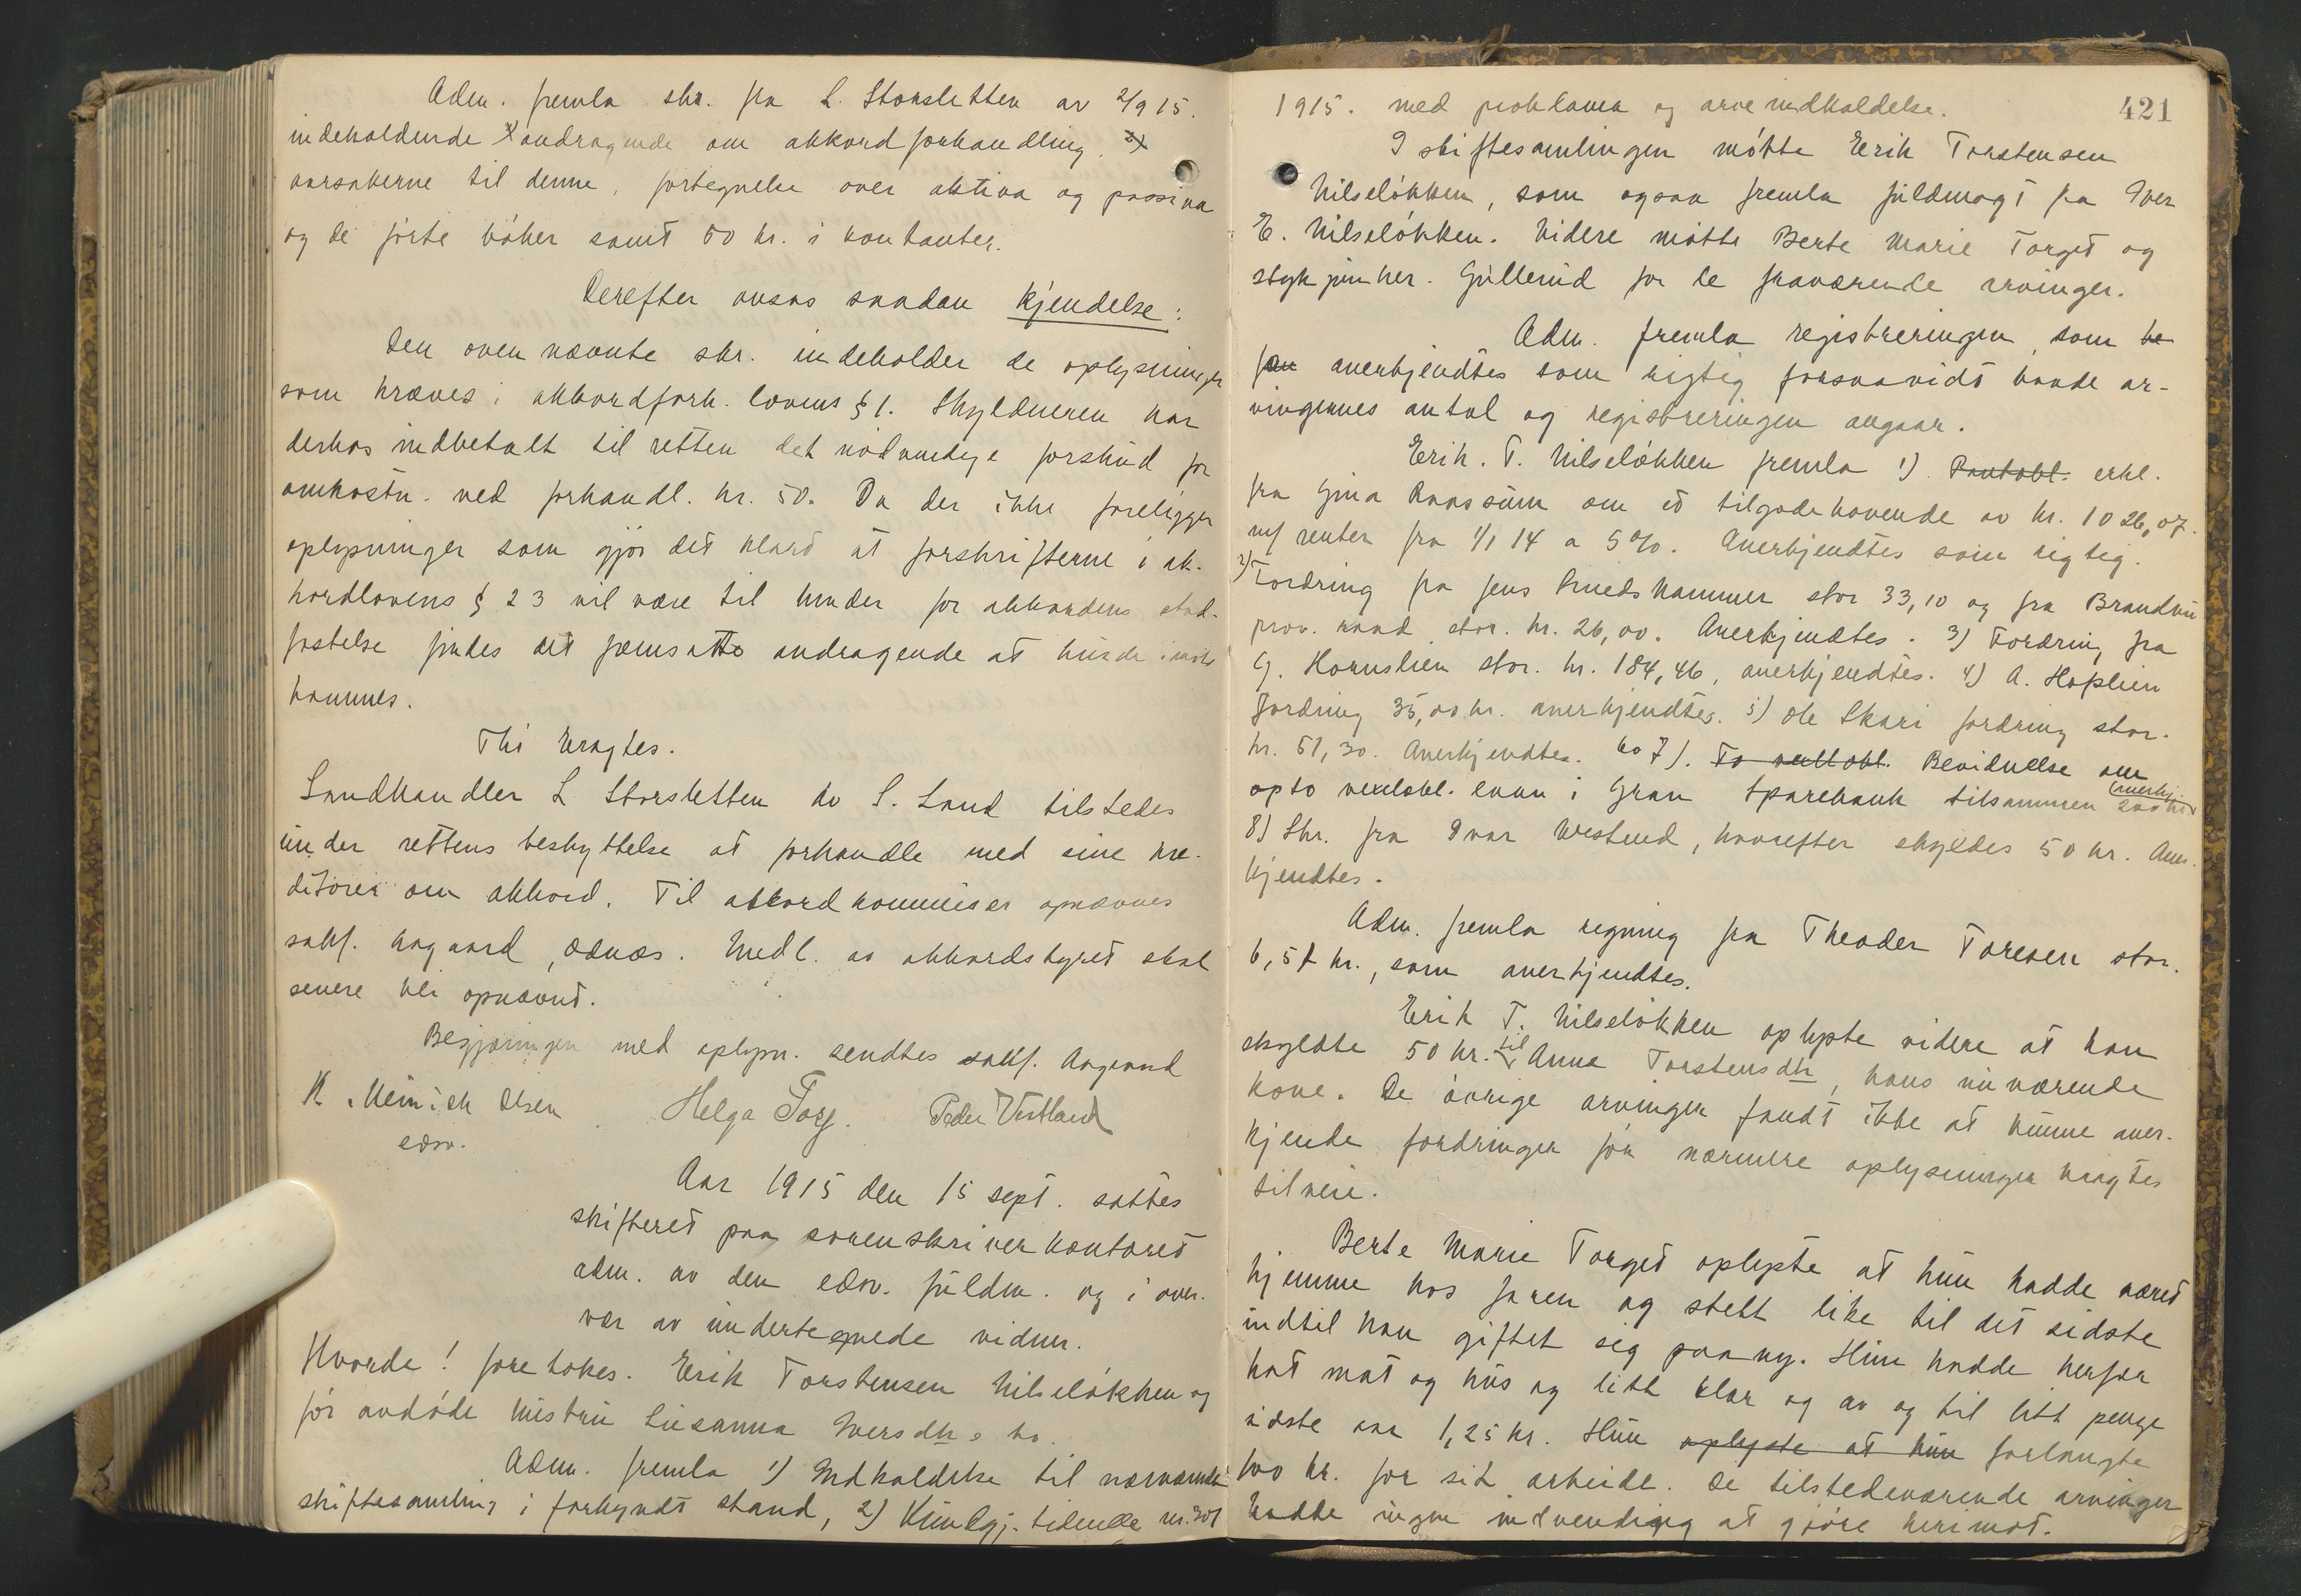 Adm. fremla skr. fra L. Storsletten av 2/9 15.
indeholdende andragende om akkordforhandling.
aarsakerne til denne, fortegnelse over aktiva og passiva
og de førte bøker samt 50 kr. i kontanter.
Derefter avsas saadan kjendelse:
Den oven nævnte skr. indeholder de oplysninger
som kræves i akkordforh. lovens § 1. Skyldneren har
derhos indbetalt til retten det nødvendige forskud for
omkostn. ved forhandl. kr. 50. Da der ikke foreligger
oplysninger som gjør det klart at forskrifterne i ak-
kordlovens § 23 vil være til hinder for akkordens stad-
fæstelse findes det fremsatte andragende at burde imøte
kommes.
Thi eragtes.
Landhandler L Storsletten av S. Land tilstedes
under rettens beskyttelse at forhandle med sine kre-
ditorer om akkord. Til akkordkommissær opnævnes
sakf. Aagaard, Odnæs. Medl. av akkordstyret skal
senere bli opnævnt.
Begjæringen med oplysn. sendtes sakf. Aagaard
K. Meinich Olsen Helga Torg. Peder Vestland
edsv.
Aar 1915 den 15 sept. sattes
skifteret paa sorenskriverkontoret
adm. av den edsv. fuldm. og i over-
vær av undertegnede vidner.
Hvorda! foretokes. Erik Torstensen Nilseløkken og
før avdøde hustru Susanna Iversdtr.s bo.
Adm. fremla 1) Indkaldelse til nærværende
skiftesamling i forkyndt stand, 2) Kundgj. tidende nr. 301
421
1915. med proklama og arveindkaldelse.
I skiftesamlingen møtte Erik Torstensen
Nilseløkken, som ogsaa fremla fuldmagt fra Iver
E. Nilseløkken. Videre møtte Berte Marie Torget og
stykjunker. Gullerud for de fraværende arvinger.
Adm. fremla registreringen, som be
fan anerkjendtes som rigtig forsaavidt baade ar-
vingernes antal og registreringen angaar.
Erik. T. Nilseløkken fremla 1) Pantobl. erkl.
fra Gina Raassum om et tilgodehavende av kr. 1026,07.
m/ renter fra 1/1 14 a 5%. Anerkjendtes som rigtig.
2) Fordring fra Jens Smedshammer stor 33,10 og fra Brandbu
prov. raad stor. kr. 26,00. Anerkjendtes. 3) Fordring fra
G. Hornslien stor. kr. 184,46, anerkjendtes. 4) A. Hoflien
fordring 35,00 kr. anerkjendtes. 5) Ole Skari fordring stor.
kr. 51,30. Anerkjendtes. 6 o 7). To vexelobl. Bevidnelse om
op to vexelobl. laan i Gran Sparebank tilsammen 200 kr. anerkj.
8) Skr. fra Ivar Westlund, hvorefter skyldes 50 kr. Aner-
kjendtes.
Adm. fremla regning fra Theodor Toresen stor.
6,51 kr., som anerkjendtes.
Erik T. Nilseløkken oplyste videre at han
skyldte 50 kr. til Anna Torstensdtr, hans nuværende
kone. De øvrige arvinger fandt ikke at kunne aner-
kjende fordringen før nærmere oplysninger bragtes
tilveie.
Berte Marie Torget oplyste at hun hadde været
hjemme hos faren og stelt like til det sidste
indtil han giftet sig paany. Hun hadde herfor
hat mat og hus og litt klær og av og til litt penge
sidste aar 1,25 kr. Hun oplyste at hun forlangte
100 kr. for sit arbeide. De tilstedeværende arvinger
hadde ingen indvending at gjøre herimot.